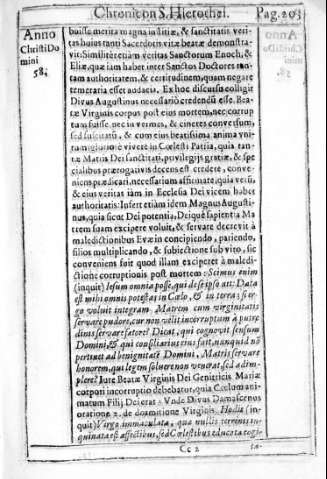 Chronicon S. Hierothei. Pag. 203
Anno
Christi Do
mini
58.
huiusce merita magna iustitiæ, & sanctitatis veri-
tas huius tanti Sacerdotis vitæ beatæ demonstra-
vit. Similiter etiam veritas Sanctorum Enoch, &
Eliæ, quæ iam habet inter Sanctos Doctores tan-
tam authoritatem, & certitudinem, quam negare
temeraria esset audacia. Ex hoc discursu colligit
Divus Augustinus necessariò credendũ esse, Bea-
tæ Virginis corpus post eius mortem, nec corrup
tum fuisse, nec in vermes, & cineres conversum,
sed
& cum eius beatissima anima vni-
vivere in Cœlesti Patria, quia tan-
tæ Matris Dei sanctitati, privilegijs gratiæ, & spe
cialibus prærogativis decens est credere, conve-
niens prædicari, necessarium affirmare, quia vera,
& eius veritas iam in Ecclesia Dei vicem habet
authoritatis. Insert etiam idem Magnus Augusti-
nus, quia sicut Dei potentia, Deique sapientia Ma
trem suam excipere voluit, & servare decrevit à
maledictionibus Evæ in concipiendo, pariendo,
filios multiplicando, & subiectione sub viro, sic
conveniens fait quod illam exciperet à maledi-
ctione corruptionis post mortem: Scimus enim
(inquit) Iesum omnia posse, qui de se ipso ait: Data
est mihi omnis potestas in Cœlo, & in terra: si er-
go voluit integram Matrem cum virginitatis
servare pudore, cur non velit incorruptam à putre
dinis servare fatore? Dicat, qui cognovit sensum
Domini, & qui consiliarius eius fait, nunquid nõ
pertinet ad benignitatẽ Domini, Matris servare
honorem, qui legem solvere non venerat, sed adim-
plere? Iure Beatæ Virginis Dei Genitricis Mariæ
corpori incorruptio debebatur, quia Cœlum ani-
matum Filij Dei erat: Vnde Divus Damascenus
oratione 2. de dormitione Virginis. Hodie (in-
quit) Virgo immaculata, quæ nullis terrenis in-
quinata est affectibus, sed Cœlestibus educata cogi-
Cc 2
ta-